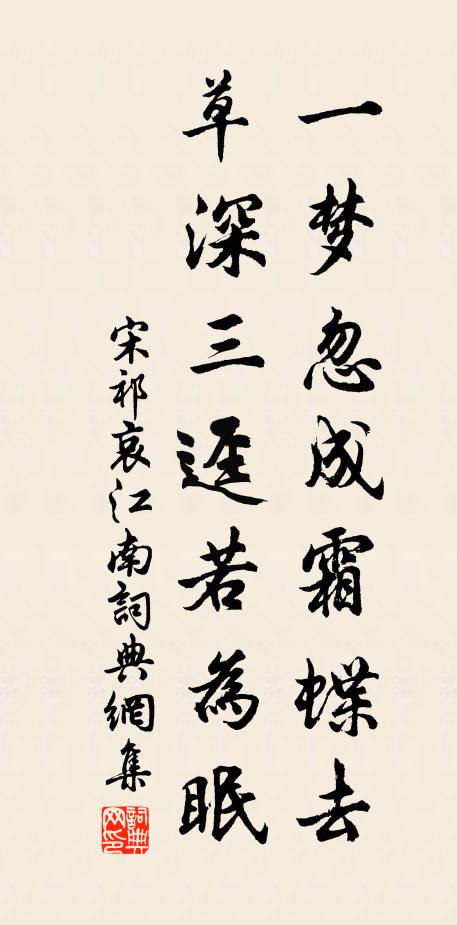 一梦忽成霜蝶去
草深三迳若為眠
宋祁哀江南詞典網集
詞典
网印